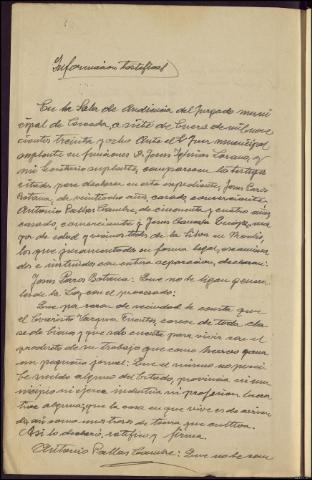 Información testifical
En la Sala de Audiencia del Juzgado muni-
cipal de a siete de Enero de mil nove-
cientos treinta y ocho. Ante el Sr. Juez municipal
suplente en funciones D. Jesús Iglesias y
mi Secretario suplente, comparecen los testigos
citados para declarar en este expediente, Jesús Paros
Botana, de años, casado, comerciante,
Antonio Pallas de cincuenta y cuatro años
casado, comerciante; y Jesús
de edad y vecinos todos de la
los que juramentados en forma legal,
dos e instruidos con entera separación, declaran:
Jesús Paros Botana: Que no le legan genera-
les de la Ley con el procesado:
Que por razón de vecindad le consta que
el Vazquez carece de toda cla-
se de bienes y que solo cuenta para vivir con el
producto de su trabajo que como herrero gana
un pequeño jornal: Que el mismo no perci-
be sueldo alguno del Estado, provincia ni mu-
nicipio ni ejerce industria ni profesion lucra-
tiva alguna; que la casa en que vive es de arrien-
do, así como unos trozos de terreno que cultiva.
Así lo declaró, ratifica y firma.
Antonio Pallas Que no le com-